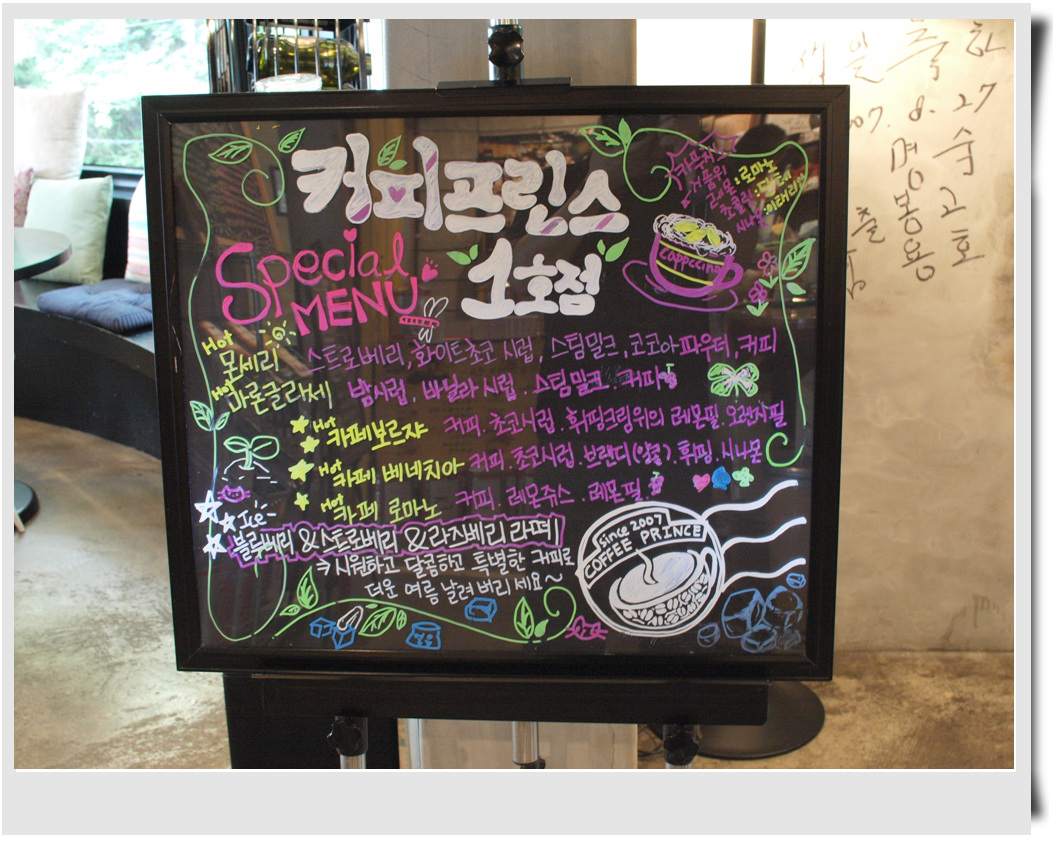 커피프린스
1호점
Special
MENU
카푸치노
거품위
레몬:로마노
시나몬:이태리
cappccino
Hot 몬세리 스트로베리, 화이트초코 시럽, 스팀밀크, 코코아파우더, 커피
Hot 마론글라세 밤시럽, 바닐라시럽. 스팀밀크. 커피
Hot 카페보르쟈 커피. 초코시럽. 휘핑크림위의 레몬필. 오렌지필
Hot 카페 베네치아 커피. 초코시럽. 브랜디(알콜). 휘핑. 시나몬
Hot 카페 로마노 커피. 레몬쥬스. 레몬필
Ice
블루베리 & 스트로베리 & 라즈베리 라떼
시원하고 달콤하고 특별한 커피로
더운 여름 날려버리세요~
since 2007
COFFEE PRINCE
일 축 하
07. 8. 27